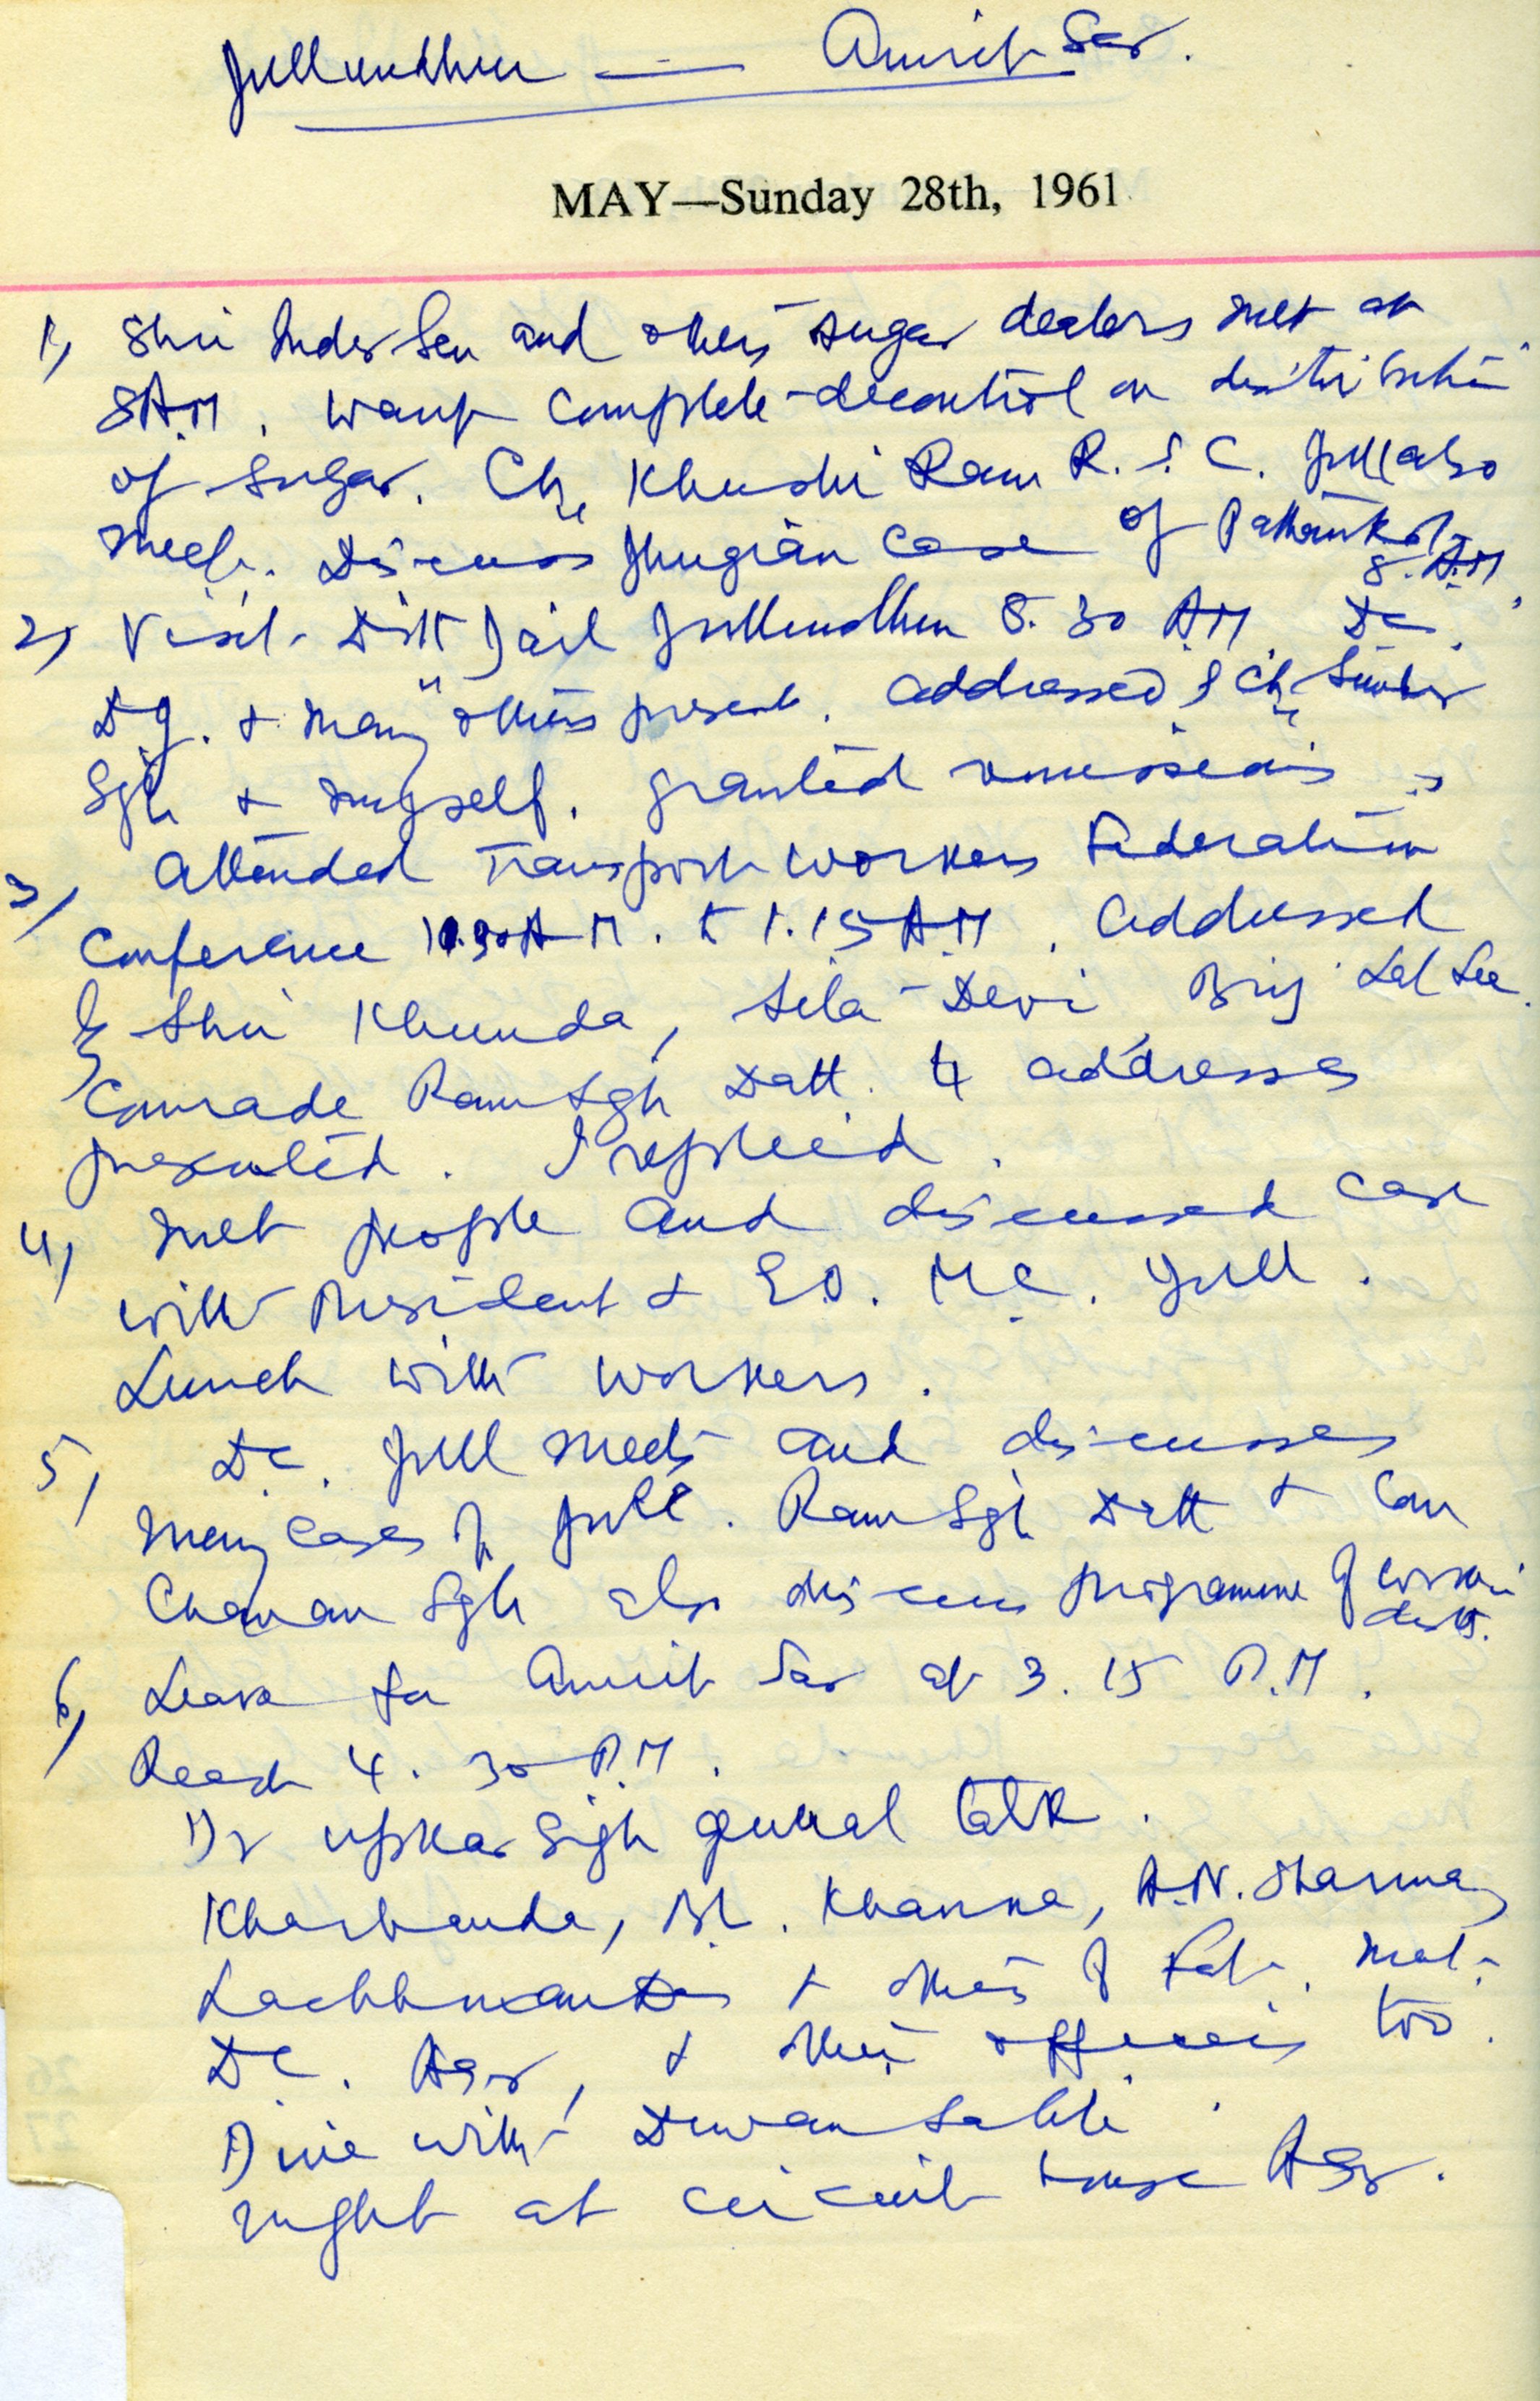 Jullundhur — Amrit Sar.
MAY—Sunday 28th, 1961
1) Shri Inder Sen and others sugar dealers met at
8 A.M. want complete decontrol on distribution
of sugar. Ch. Khushi Ram R. S. C. Jull also
meet. Discuss Jhugian case of Pathankot
8. A.M.
2) Visit Distt Jail Jullundhur 8.30 AM. DC.
D I g. & many others present. addressed Ch. Sunder
Sgh & myself. granted remissions
3) Attended Transport workers Federation
Conference 10.30 A.M. to 1.15 A.M. addressed
by Shri Khunda, Sila Devi, Brij Lal
Comrade Ram Sgh Datt. 4 addresses
presented. I replied.
4) met people and discussed case
with President & E.O. M.C. Jull.
Lunch with workers.
5) DC. Jull meets and discusses
many cases of Jull. Ram Sgh Datt & Com
Chanan Sgh also discuss programme of
distt.
6) Leave for Amrit Sar at 3.15 P.M.
Reach 4.30 P.M.
Dr Upkar Sigh general talk.
Kharbanda, M. Khanna, A.N. Sharma,
Lachhman Das & others of met.
DC. Asr, & other officers too.
Dine with Dewan Sahib.
night at circuit house Asr.